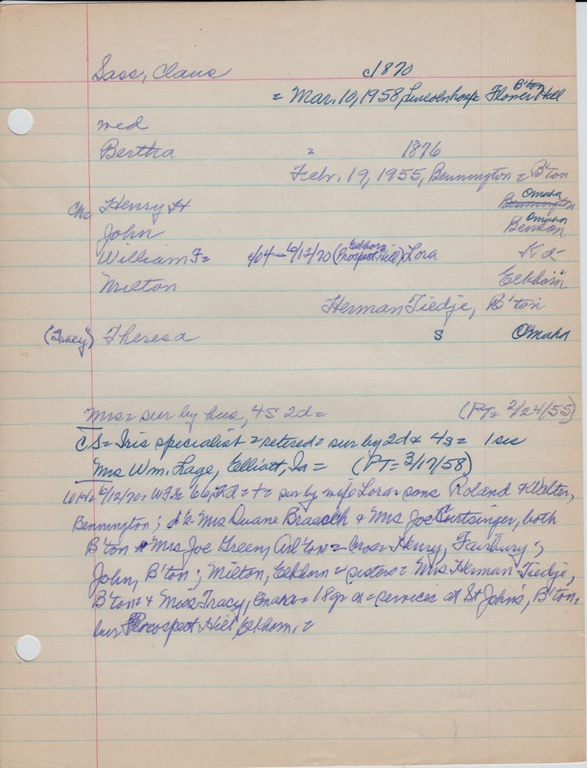 Sass, Claus c1870
B'ton
= Mar. 10, 1958, Lincoln hosp Flower Hill
med
Bertha = 1876
Feb. 19, 1955, Bennington = B'ton
Omaha
chn Henry H Bennington
Omaha
John Benson
Elkhorn
William F = c/04 - 6/12/70 (Prospect Hill) Lora Kd-
Milton Elkhorn
Herman Tiedje, B'ton
(Tracy) Theresa S Omaha
Mrs = sur by hus, 4S 2d = (PT = 2/24/55)
CS = Iris specialist = retired = sur by 2d & 4s = 1 sis
Mrs Wm. Lage, Elliott, Ia = (PT = 3/17/58)
6/12/70 = sur by wife Lora = sons Roland & Walter,
Bennington; d's Mrs Duane Braasch & Mrs Joe Curtsinger, both
B'ton & Mrs Joe Green, = bros = Henry, Fairbury;
John, B'ton; Milton, Elkhorn = sisters = Mrs Herman Tiedje,
B'ton = & Miss Tracy, Omaha = 18 gr ch = services at St John's, B'ton =
bur Prospect Hill Elkhorn. =